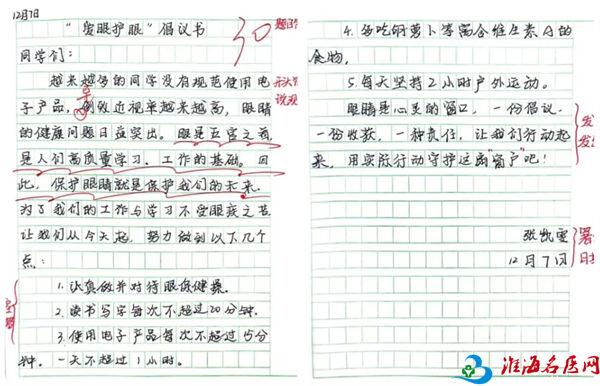 12月7日
"爱眼护眼"倡议书
同学们:
越来越多的同学没有规范使用电
子产品,导致近视率越来越高,眼睛
的健康问题日益突出。眼是五官之首,
是人们高质量学习、工作的基础。因
此,保护眼睛就是保护我们的未来。
为了我们的工作与学习不受眼疾之苦,
让我们从今天起,努力做到以下几个
点:
1.认真做并对待眼保健操。
2.读书写字每次不超过20分钟。
3.使用电子产品每次不超过15分
钟。一天不超过1小时。
4.多吃胡萝卜等富含维生素A的
食物。
5.每天坚持2小时户外运动。
眼睛是心灵的窗口,一份倡议,
一份收获,一种责任,让我们行动起
来,用实际行动守护这扇"窗户"吧!
12月7日
题目
淮海名医网